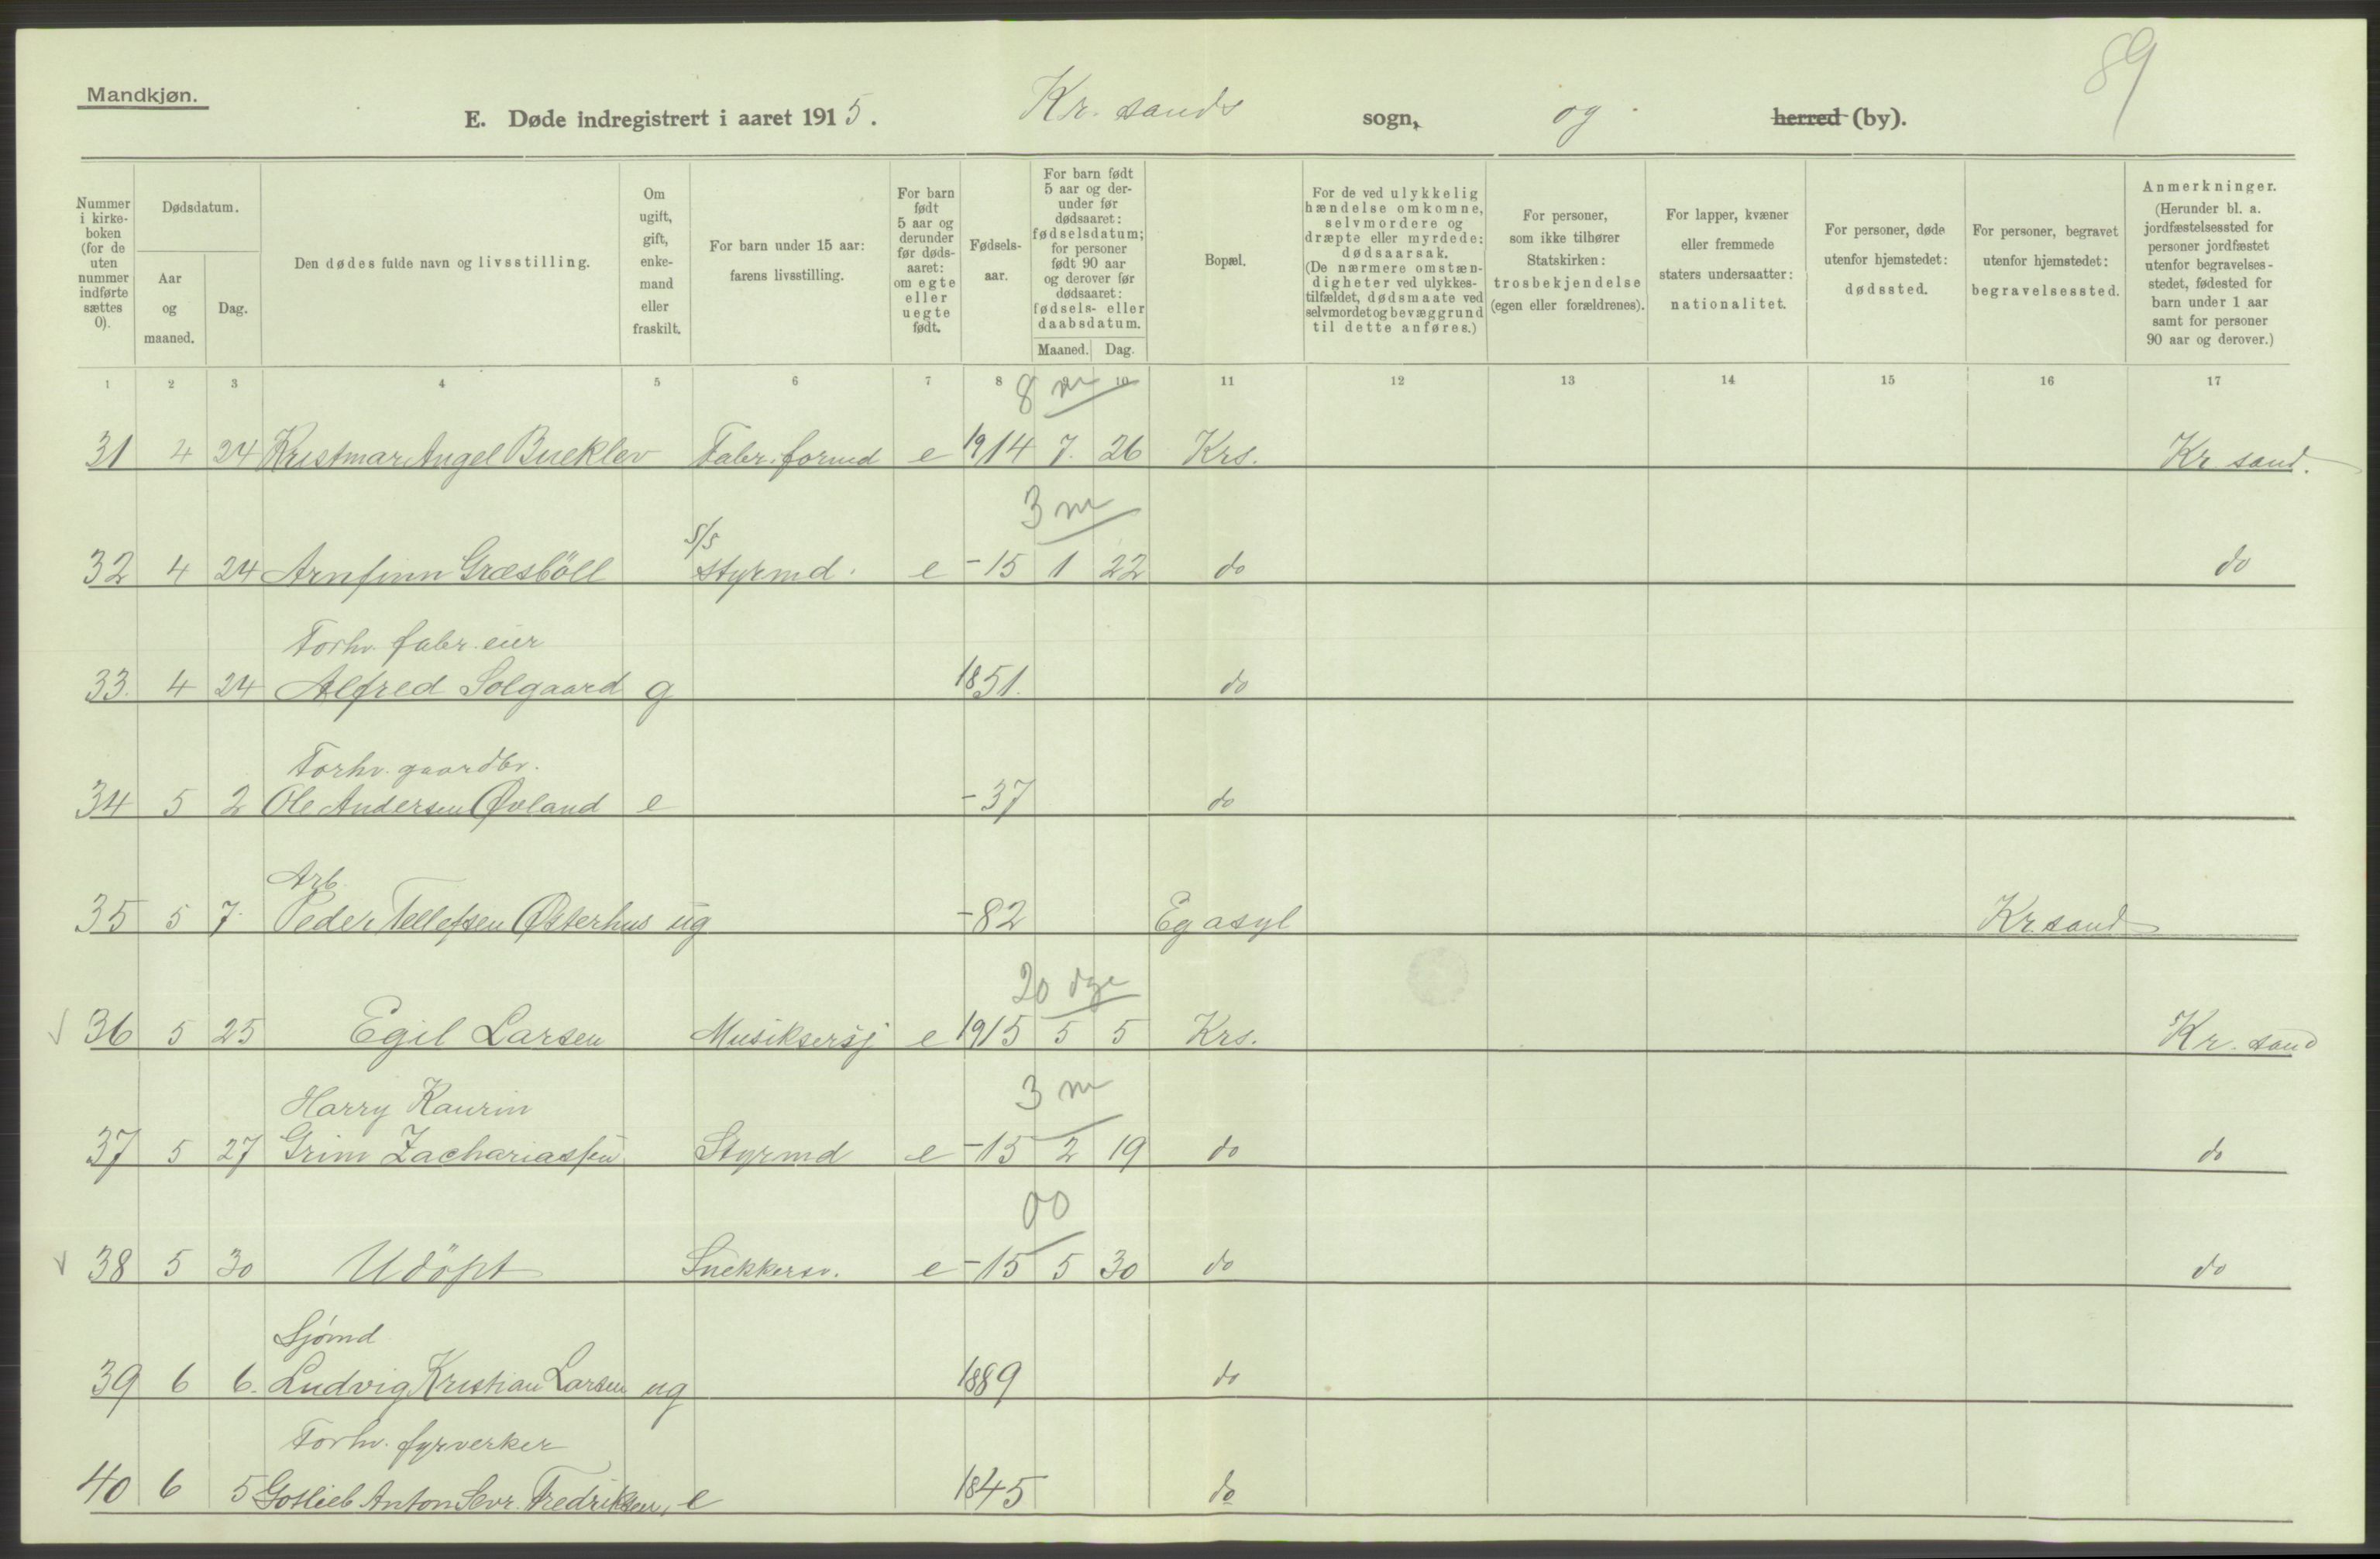 89
Mandkjøn.
E. Døde indregistrert i aaret 1915. Kr. sands sogn, og herred (by).
Nummer i kirkeboken (for de uten nummer indførte sættes 0).
Dødsdatum.
Aar og maaned.
Dag.
Den dødes fulde navn og livsstilling.
Om ugift, gift, enkemand eller fraskilt.
For barn under 15 aar: farens livsstilling.
For barn født 5 aar og derunder før dødsaaret: om egte eller uegte født.
Fødselsaar.
For barn født 5 aar og derunder før dødsaaret: fødselsdatum; for personer født 90 aar og derover før dødsaaret: fødsels- eller daabsdatum.
Maaned. Dag.
Bopæl.
For de ved ulykkelig hændelse omkomne, selvmordere og dræpte eller myrdede: dødsaarsak. (De nærmere omstændigheter ved ulykkestilfældet, dødsmaate ved selvmordet og bevæggrund til dette anføres.)
For personer, som ikke tilhører Statskirken: trosbekjendelse (egen eller forældrenes).
For lapper, kvæner eller fremmede staters undersaatter: nationalitet.
For personer, døde utenfor hjemstedet: dødssted.
For personer, begravet utenfor hjemstedet: begravelsessted.
Anmerkninger. (Herunder bl. a. jordfæstelsessted for personer jordfæstet utenfor begravelsesstedet, fødested for barn under 1 aar samt for personer 90 aar og derover.)
1 2 3 4 5 6 7 8 9 10 11 12 13 14 15 16 17
8 m
31 4 24 Kristmar Angel Bueklev Fabr. formd e 1914 7. 26 Krs. Kr. sand.
3 m
S/S
32 4 24 Arnfinn Græsböll styrmd. e -15 1 22 do do
Forhv. fabr. eier
33. 4 24 Alfred Solgaard g 1851. do
Forhv. gaardbr.
34 5 2 Ole Andersen Øvland e -37 do
Arb.
35 5 7. Peder Tellefsen Østerhus ug -82 Eg asyl Kr. sand
20 dge
36 5 25 Egil Larsen Musiksersj e 1915 5 5 Krs. Kr. sand
Harry Kaurin 3 m
37 5 27 Grim Zachariassen Styrmd e -15 2 19 do do
00
38 5 30 Udöpt Snekkersv. e -15 5 30 do do
Sjømd
39 6 6. Ludvig Kristian Larsen ug 1889 do
Forhv. fyrverker
40 6 5 Gotlieb Anton Sevr. Fredriksen, e 1845 do